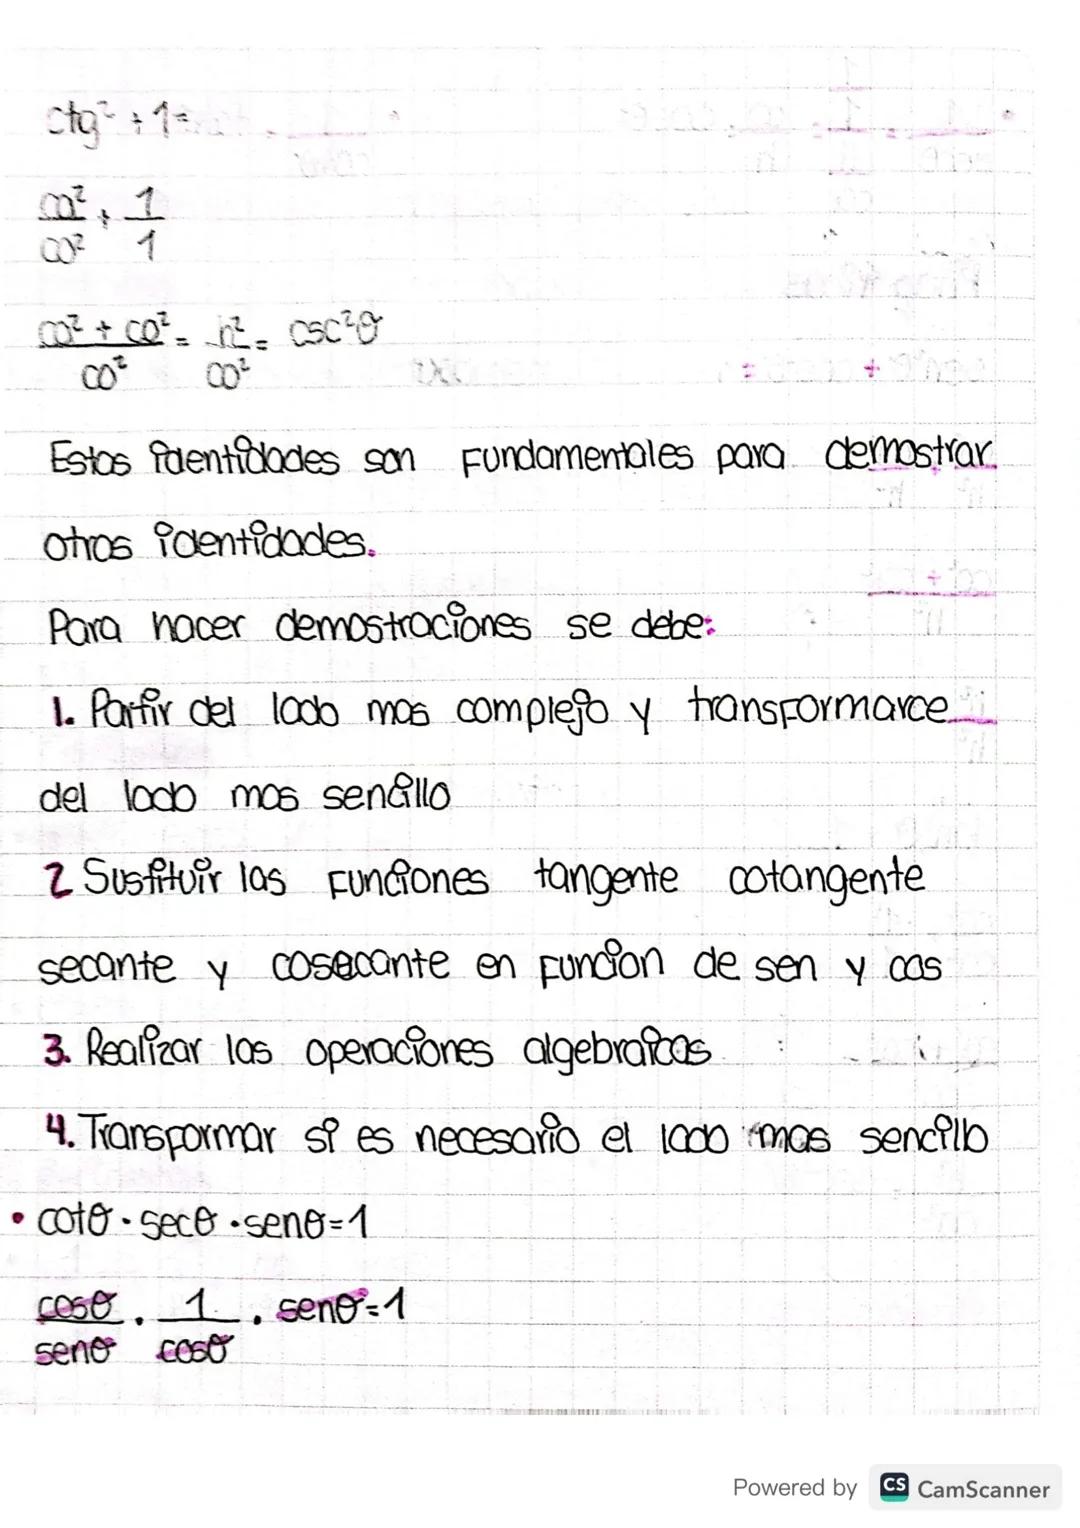 ctg² + 1=
ca² + 1
co² 1
ca² + co² = h² = csc²θ
co² co²
Estas identidades son fundamentales para demostrar
otras identidades.
Para hacer demostraciones se debe:
1. Partir del lado mas complejo y transformarce
del lado mas sencillo
2 Sustituir las funciones tangente cotangente
secante y cosecante en funcion de sen y cos
3. Realizar las operaciones algebraicas
4. Transformar si es necesario el lado mas sencillo
• cotθ · secθ · senθ=1
cosθ . 1 . senθ=1
senθ cosθ
Powered by CS CamScanner